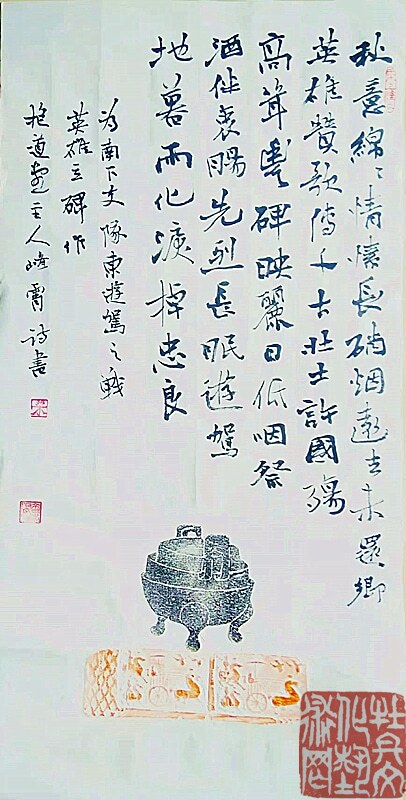 秋意綿々情懷長硝烟遠去未還鄉
英雄贊歌傳千古壯士許國殤
高聳豐碑映麗日低咽祭
酒衷腸先烈長眠遊駕
地暮雨化淚悼忠良
为南下支隊東遊駕之戰
英雄立碑作
道主人霄诗書